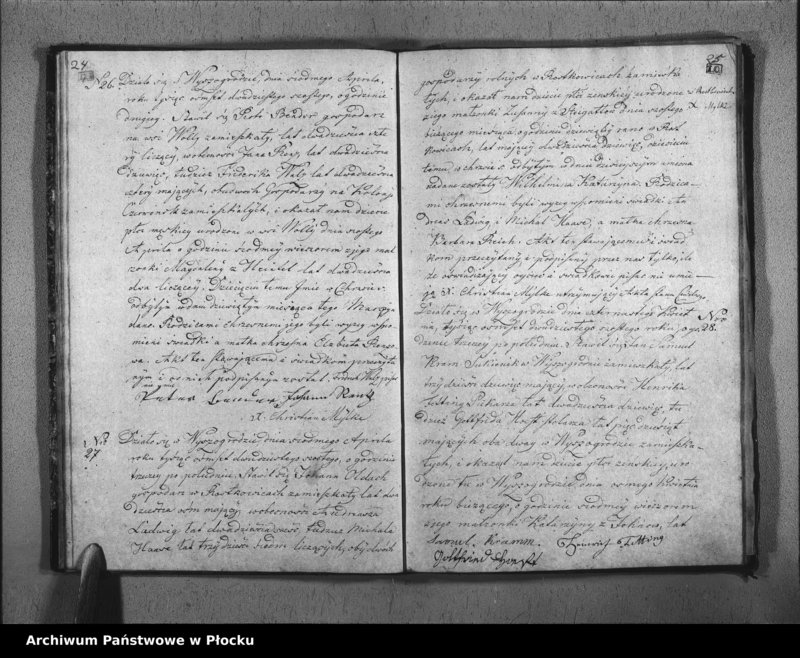 24.
N 26. Działo się w Wyszogrodzie, dnia siodmego Aprila,
roku tysiąc ośmset dwudziestego szostego, o godzinie
drugiey. Stawił się Piotr gospodarz
na wsi Wolly zamieszkały, lat dwadzieścia czte
ry liczący, w obecności Jana lat dwadzieścia
dziewięc, tudzież Frideryka Walz lat dwadzieścia
cztery maiących, obudwóch Gospodarzy na Kolonji
Czerwinsk zamieszkałych, i okazał nam dziecie
płci męskiey urodzone w wsi Wolly dnia szostego
Aprila o godzinie siodmey wieczorem z jego mał
żonki Magdaleny z lat dwadzieścia
dwa liczącey. Dziecięciu temu Imie w Chrzcie
odbytym w dniu dziewiątym miesiąca tego Marcyn
dano. Rodzicami chrzesnemi jego byli wyżey wspo
mieni świadki a matka chrzesna Elzbieta
wa. Akt ten stawaiącemu i świadkom przeczyta
nym i od nich podpisanym został. Fridrich Walz pisać
nie umie
Peter Johann
X. Christian Mylke
Nro
27
Działo się w Wyszogrodzie dnia siodmego Aprila
roku tysiąc ośmset dwudziestego szostego, o godzinie
trzeciey po południu. Stawił się Johann
gospodarz w Rostkowicach zamieszkały, lat dwa
dzieścia ośm maiący w obecności Andreasza
Ladwig lat dwadzieścia tudzież Michała
Haawe lat trzydzieści siedm liczących, obydwóch
25
gospodarzy rolnych w Rostkowicach zamieszka
łych, i okazał nam dziecie płci zenskiey urodzone w Rostkowicach
z jego małzonki Zuzanny z dnia szostego
bieżącego miesiąca o godzinie dziesiątey rano w Rost
kowicach, lat maiącey dwadzieścia dziewięć, dziecieciu
temu w chrzcie odbytym w dniu dzisieyszym imiona
nadane zostały Wilhelmina Katarzyna. Rodzica
mi Chrzesnemi byli wyzey wspomnieni świadki An
dreas Ladwig i Michał Haawe, a matka chrzesna
Barbara Reich. Akt ten stawaiącemu i świad
kom przeczytany i podpisany przez nas tylko, ile
że oświadczaiący oyciec i świadkowie pisać nie umie
ją X. Christian Mylke utrzymuiący Akta Stanu Cywilnego
Nro
28.
Działo się w Wyszogrodzie dnia czternastego Kwiet
nia, tysiąc ośmset dwudziestego szostego roku, o go
dzinie trzeciey po południu. Stawił się Pan Samuel
Kram Sukiennik w Wyszogrodzie zamieszkały, lat
trzydzieści dziewięć maiący, w obecności Henryka
Fetting Piekarza lat dwadzieścia dziewięć, tu
dzież Gottfrida lat pięćdziesiąt
maiących oba dway w Wyszogrodzie zamieszka
łych, i okazał nam dziecie płci zenskiey, uro
dzone tu w Wyszogrodzie dnia osmego Kwietnia
roku bieżącego, o godzinie siodmey wieczorem
z jego małzonki Katarzyny z lat
Samuel. Kramm. Heinrich Fetting
Gottfried
Archiwum Państwowe w Płocku